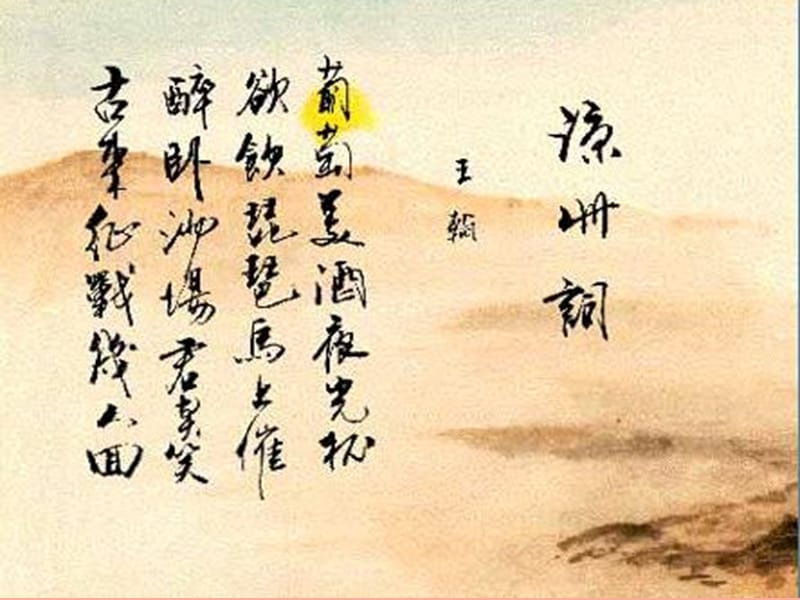 涼州詞
王翰
葡萄美酒夜光杯
欲飲琵琶馬上催
醉卧沙場君莫笑
古來征戰幾人回